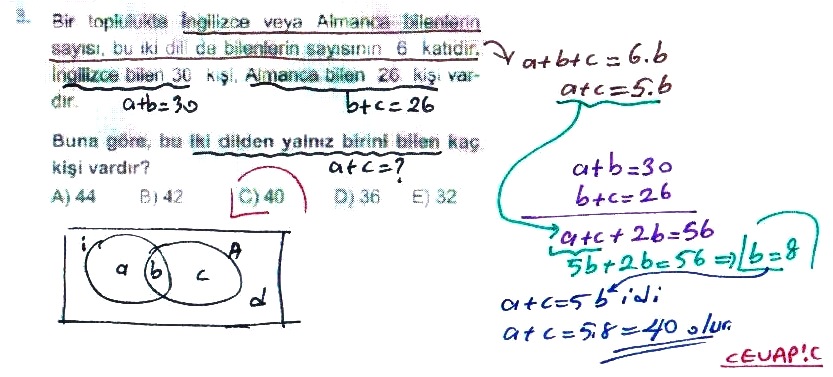 3. Bir toplulukta İngilizce veya Almanca bilenlerin
sayısı, bu iki dili de bilenlerin sayısının 6 katıdır.
İngilizce bilen 30 kişi, Almanca bilen 26 kişi var-
dır.
a+b=30
b+c=26
Buna göre, bu iki dilden yalnız birini bilen kaç
kişi vardır?
a+c=?
A) 44 B) 42 C) 40 D) 36 E) 32
i A
a b c
d
a+b+c=6.b
a+c=5.b
a+b=30
b+c=26
a+c+2b=56
5b+2b=56⇒b=8
a+c=5b idi
a+c=5.8=40 olur.
CEVAP:C